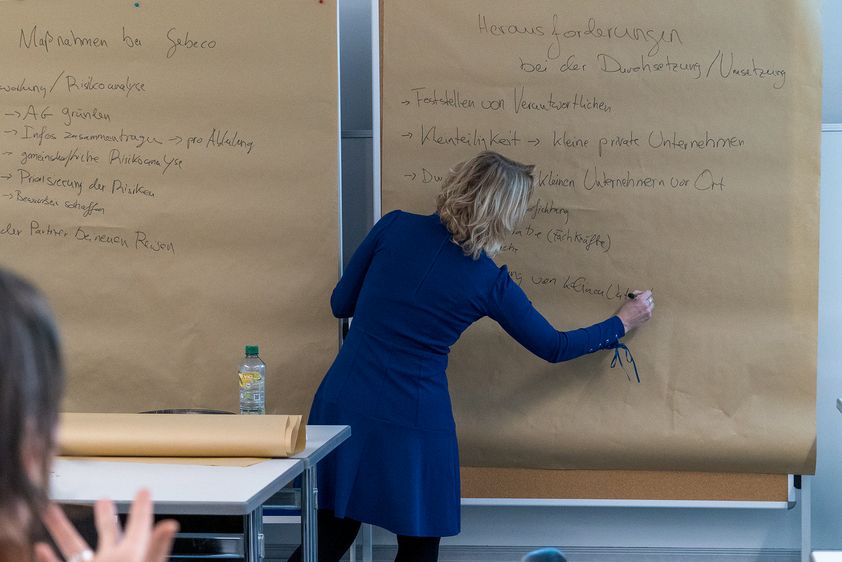 Maßnahmen bei Gebeco
/Risikoanalyse
→ AG gründen
→ Infos zusammentragen → pro Abteilung
→ gemeinschaftliche Risikoanalyse
→ Priorisierung der Risiken
→ schaffen
der Partner bei neuen Reisen
Herausforderungen
bei der Durchsetzung/Umsetzung
→ Feststellen von Verantwortlichen
→ Kleinteiligkeit → kleine private Unternehmen
→ kleinen Unternehmern vor Ort
(Fachkräfte)
von kleinen